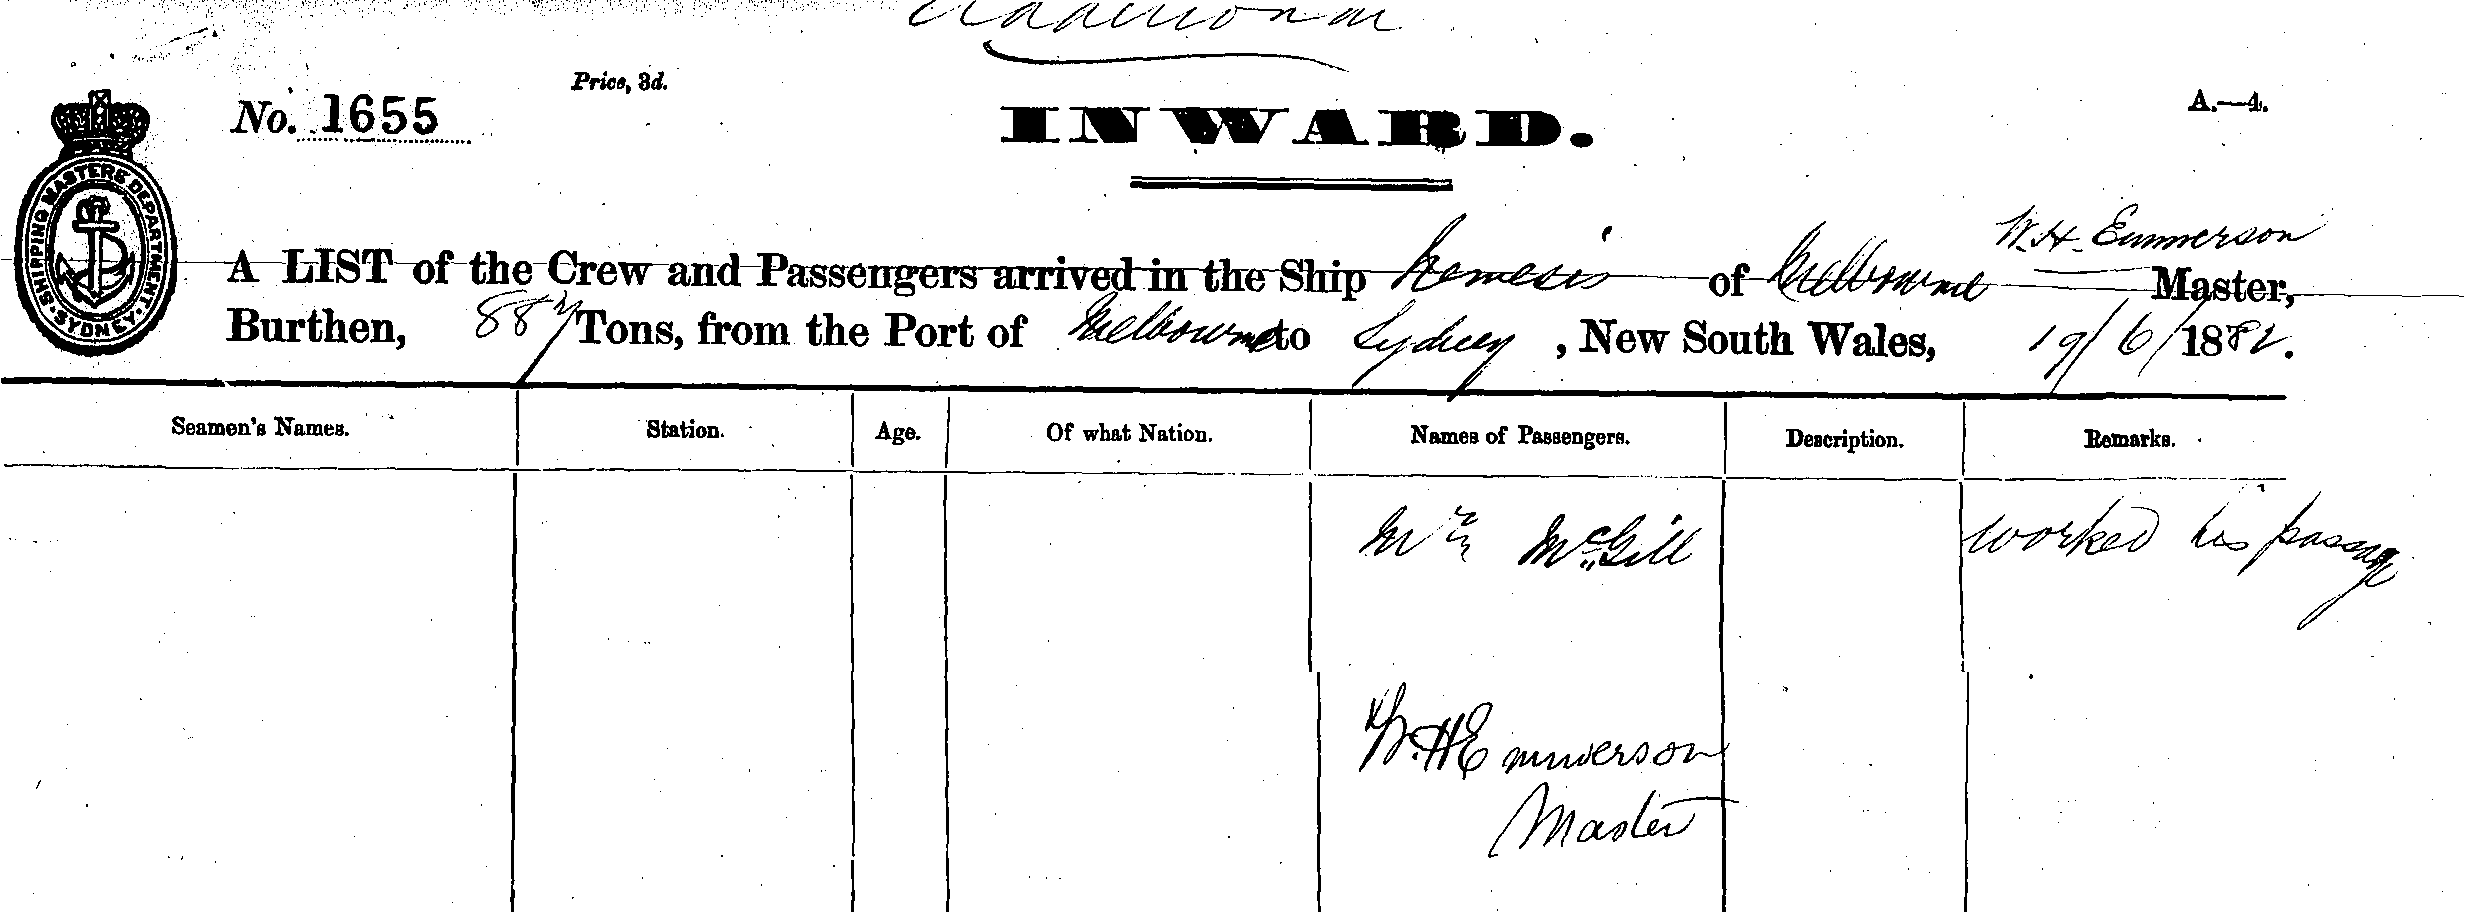 Additional
Price, 3d.
No. 1655
INWARD.
A.—4.
SHIPPING MASTERS DEPARTMENT. SYDNEY.
W. H. Emmerson
A LIST of the Crew and Passengers arrived in the Ship Nemesis of Melbourne Master,
Burthen, 887 Tons, from the Port of Melbourne to Sydney, New South Wales, 19/6/1882.
Seamen's Names. Station. Age. Of what Nation. Names of Passengers. Description. Remarks.
Mr McGill worked his passage
W. H Emmerson
Master